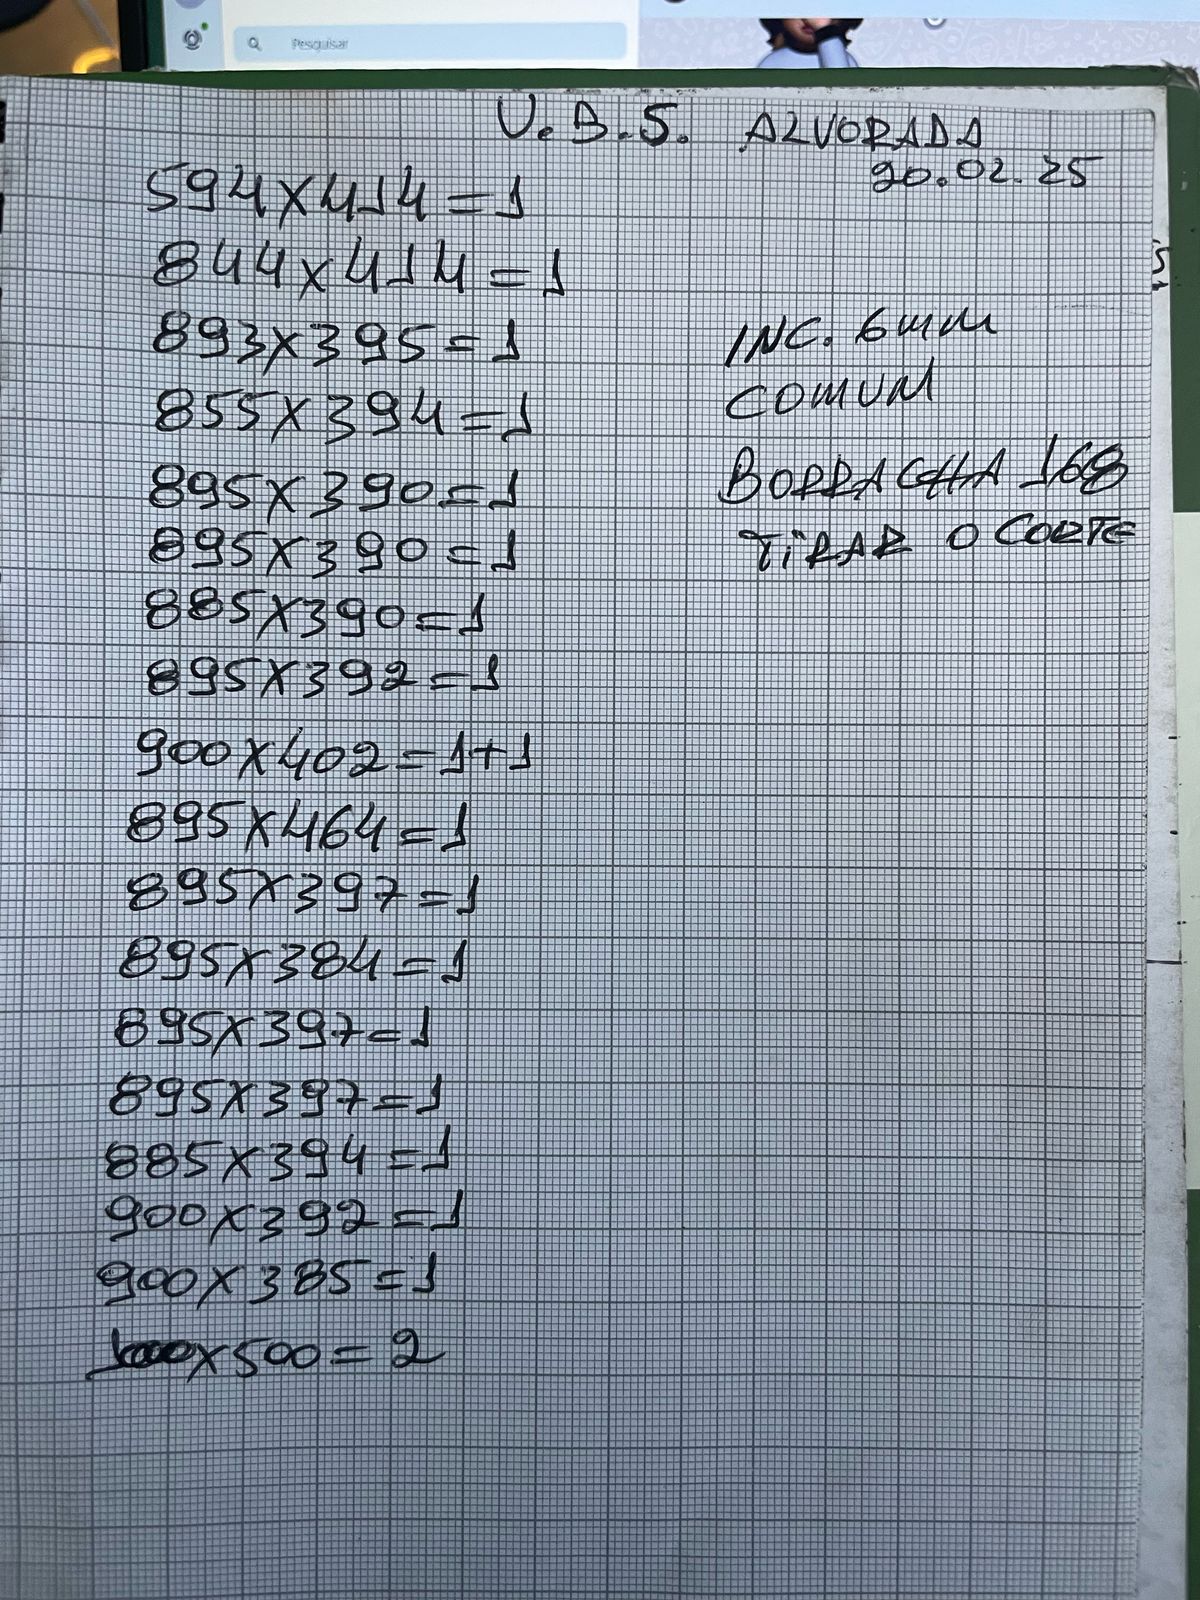 Pesquisar
U.B.S. ALVORADA
20.02.25
594X414=1
844X414=1
893X395=1
855X394=1
895X390=1
895X390=1
885X390=1
895X392=1
900X402=1+1
895X464=1
895X397=1
895X384=1
895X397=1
895X397=1
885X394=1
900X392=1
900X385=1
1000X500=2
INC. 6mm
COMUM
BORRACHA 168
TIRAR O CORTE